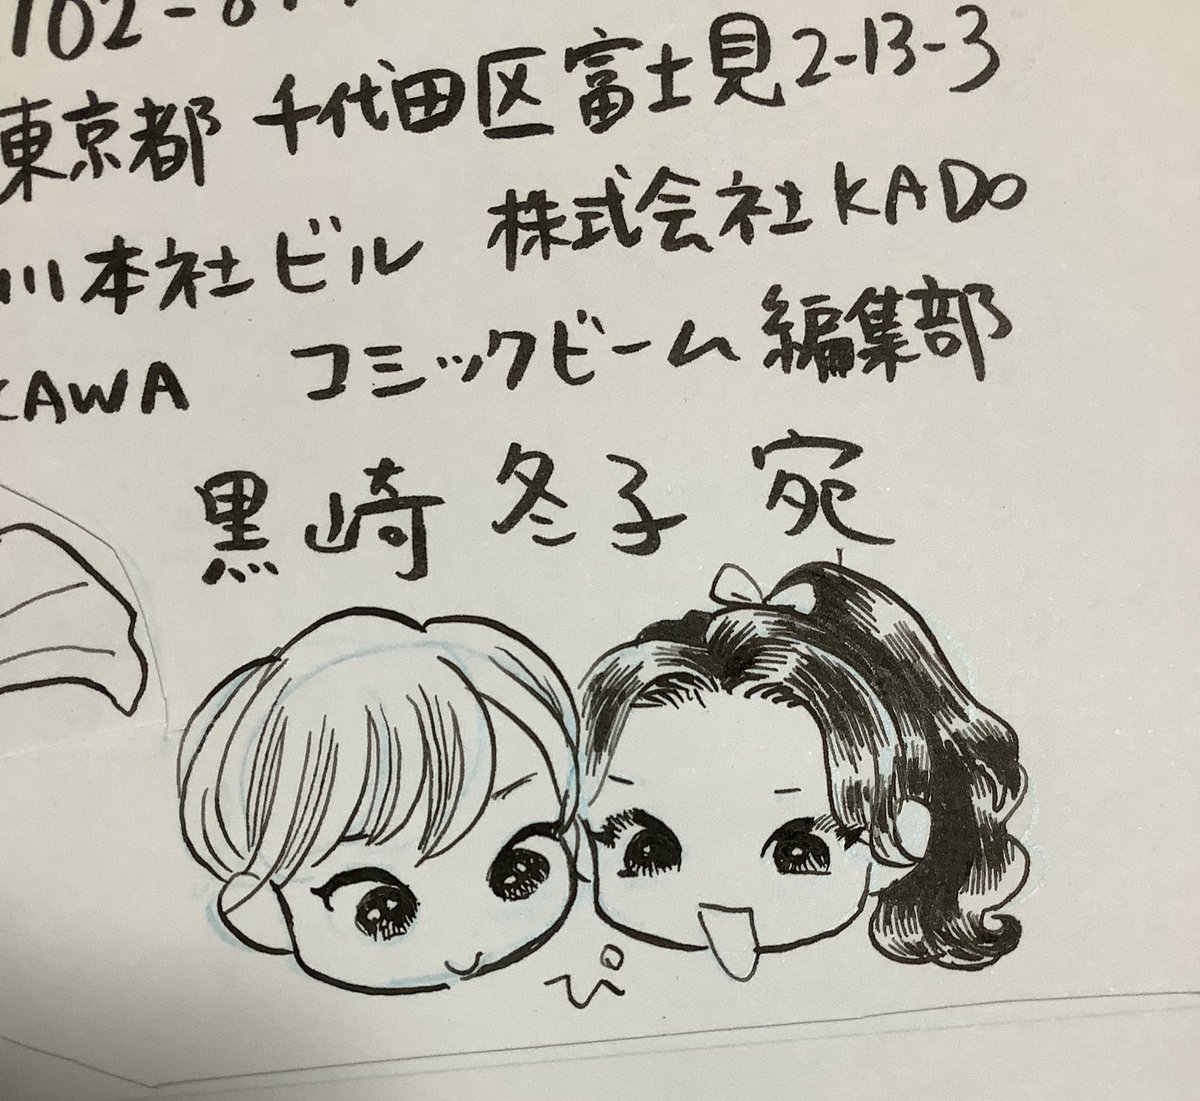 102-8
東京都 千代田区富士見2-13-3
川本社ビル 株式会社KADO
KAWA コミックビーム編集部
黒崎 冬子 宛
ぴ